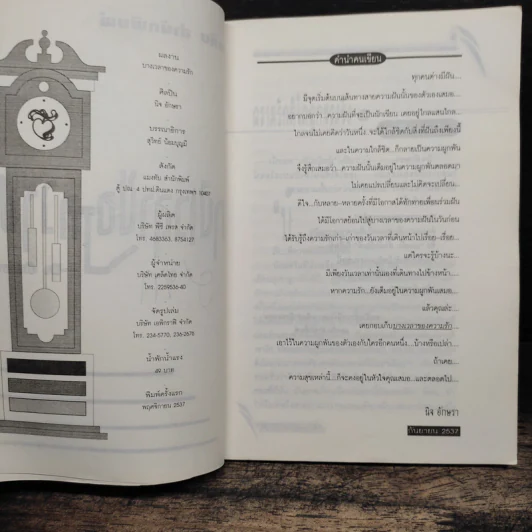 ผลงาน
บางเวลาของความรัก
ศิลปิน
นิจ อักษรา
บรรณาธิการ
สุวิทย์ นิยมบุญมี
สังกัด
แมงทับ สำนักพิมพ์
ตู้ ปณ. 4 ปทฝ.ดินแดง กรุงเทพฯ 10407
ผู้ผลิต
บริษัท พีซี เพรส จำกัด
โทร. 4683363, 8754127
ผู้จำหน่าย
บริษัท เคล็ดไทย จำกัด
โทร. 2259536-40
จัดรูปเล่ม
บริษัท เอพิกราฟี จำกัด
โทร. 234-5770, 236-2676
น้ำพักน้ำแรง
49 บาท
พิมพ์ครั้งแรก
พฤศจิกายน 2537
คำนำคนเขียน
ทุกคนต่างมีฝัน...
มีจุดเริ่มต้นบนเส้นทางสายความฝันนั้นของตัวเองเสมอ...
อยากบอกว่า...ความฝันที่จะเป็นนักเขียน เคยอยู่ไกลแสนไกล...
ไกลจนไม่เคยคิดว่าวันหนึ่ง...จะได้ใกล้ชิดกับสิ่งที่ฝันถึงเพียงนี้
และในความใกล้ชิด...ก็กลายเป็นความผูกพัน
จึงรู้สึกเสมอว่า...ความฝันนั้นเดิมอยู่ในความผูกพันตลอดมา
ไม่เคยแปรเปลี่ยนและไม่คิดจะเปลี่ยน...
ดีใจ...กับหลาย-หลายครั้งที่มีโอกาสได้ทักทายเพื่อนร่วมฝัน
ได้มีโอกาสย้อนไปสู่บางเวลาของความฝันในวันก่อน
ได้รับรู้ถึงความรักเก่า-เก่าของวันเวลาที่เดินหน้าไปเรื่อย-เรื่อย...
แต่ใครจะรู้บ้างนะ...
มีเพียงวันเวลาเท่านั้นเองที่เดินทางไปข้างหน้า...
หากความรัก...ยังเดิมอยู่ในความผูกพันเสมอ...
แล้วคุณล่ะ...
เคยกอบเก็บบางเวลาของความรัก...
เอาไว้ในความผูกพันของตัวเองกับใครอีกคนหนึ่ง...บ้างหรือเปล่า...
ถ้าเคย...
ความสุขเหล่านี้...ก็จะคงอยู่ในหัวใจคุณเสมอ...และตลอดไป...
นิจ อักษรา
กันยายน 2537